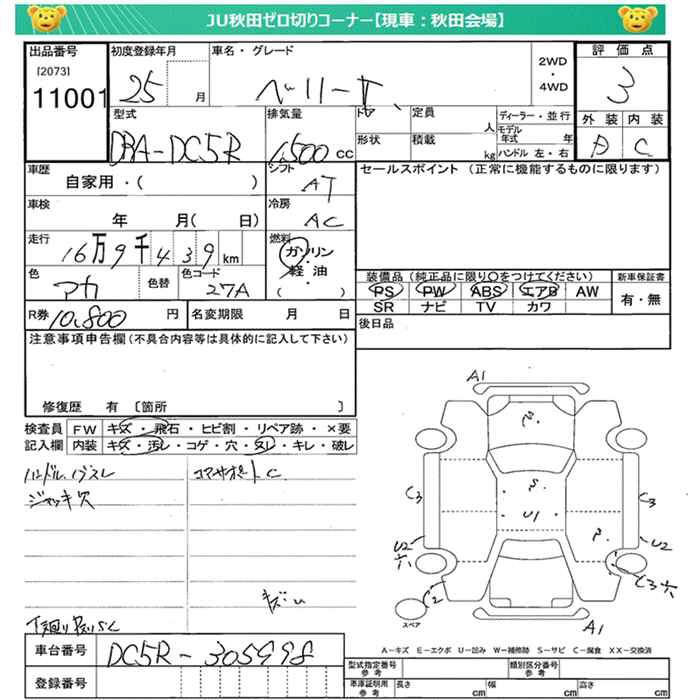 JU秋田ゼロ切りコーナー【現車：秋田会場】
出品番号
[2073]
11001
初度登録年月
25 月
車名・グレード
ベリーサ
2WD
・
4WD
評価点
3
外装 内装
D C
型式
DBA-DC5R
排気量
1,500 cc
ドア
定員
人
形状
積載
kg
ディーラー・並行
モデル年式 年
ハンドル 左・右
車歴
自家用・( )
シフト
AT
セールスポイント (正常に機能するものに限ります)
車検
年 月( 日)
冷房
AC
走行
16万9千439km
燃料
ガソリン
・
軽油
( )
色
アカ
色替
色コード
27A
装備品 (純正品に限り○をつけてください)
PS PW ABS エアB AW
SR ナビ TV カワ
新車保証書
有・無
R券 10,800円
名変期限 月 日
後日品
注意事項申告欄(不具合内容等は具体的に記入して下さい)
修復歴 有 〔箇所 〕
検査員 FW キズ・飛石・ヒビ割・リペア跡・×要
記入欄 内装 キズ・汚レ・コゲ・穴・スレ・キレ・破レ
ハンドル、ノブスレ
ジャッキ欠
コアサポートC
キズ
下廻り
A1
C3
C3
S
U1
U2
穴
U2
C2
C3穴
スペア
A1
A-キズ E-エクボ U-凹み W-補修跡 S-サビ C-腐食 XX-交換済
車台番号
DC5R-305998
登録番号
型式指定番号
参考
類別区分番号
参考
車庫証明用
参考
長さ cm
幅 cm
高さ cm